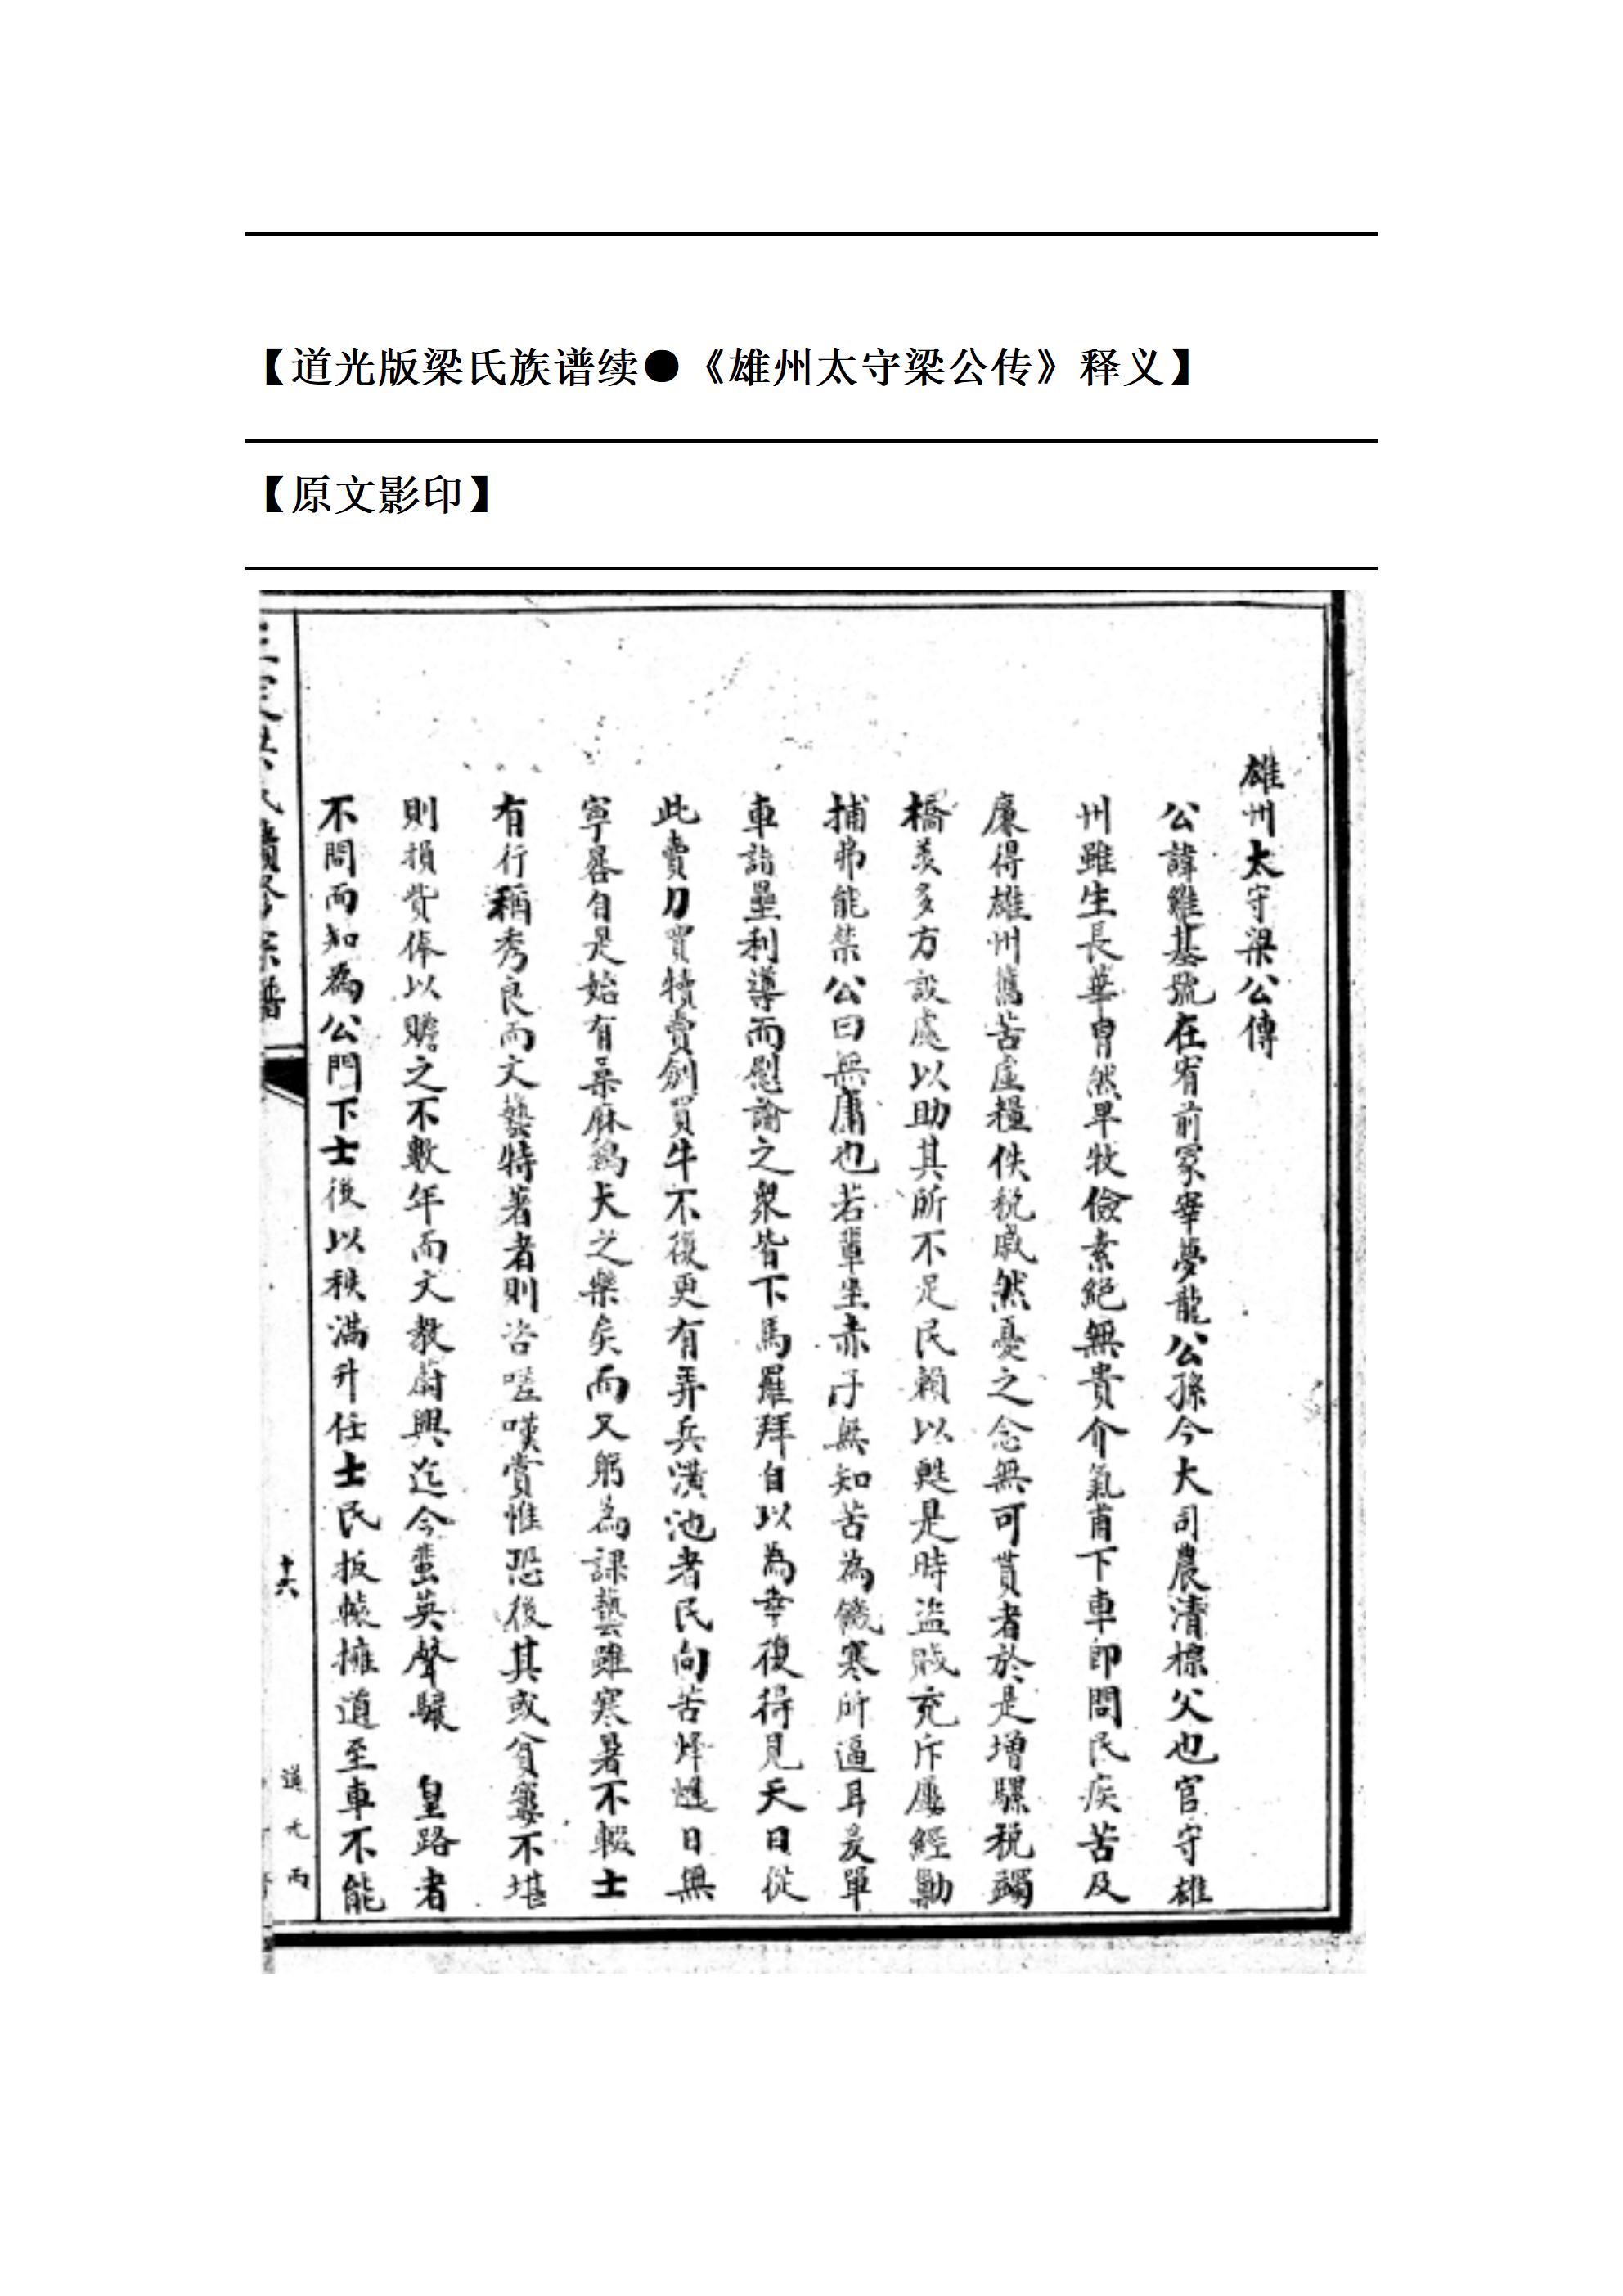 【道光版梁氏族谱续●《雄州太守梁公传》释义】
【原文影印】
雄州太守梁公傳
公諱維基號在宥前冢宰夢龍公孫今大司農清標父也官守雄
州雖生長華胄然早牧儉素絕無貴介氣甫下車即問民疾苦及
廉得雄州舊苦虛糧佚稅戚然憂之念無可貰者於是增騾稅蠲
橋羨多方設處以助其所不足民賴以甦是時盜賊充斥屢經勦
捕弗能禁公曰無庸也若輩坐赤子無知苦為饑寒所逼耳爰單
車詣壘利導而慰諭之衆皆下馬羅拜自以為幸復得見天日從
此賣刀買犢賣劍買牛不復更有弄兵潢池者民向苦烽燧日無
寧晷自是始有桑麻雞犬之樂矣而又躬為課藝雖寒暑不輟士
有行稱秀良而文藝特著者則咨嗟嘆賞惟恐後其或貧窶不堪
則損貲俸以贍之不數年而文教蔚興迄今蜚英聲驤 皇路者
不問而知為公門下士後以秩滿升任士民扳轅擁道至車不能
十六